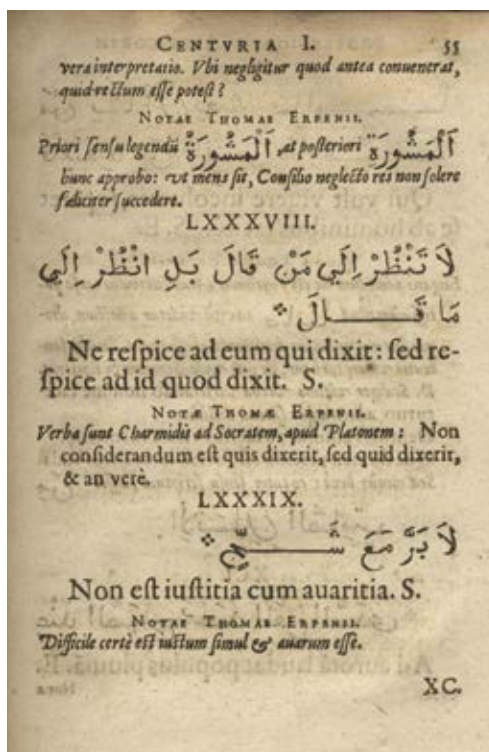 CENTVRIA I. 55
vera interpretatio. Vbi negligitur quod antea conuenerat,
quid rectum esse potest?
NOTAE THOMAE ERPENII.
Priori sensu legendũ اَلْمَشُورَةُ, at posteriori اَلْمَشُورَةَ
hunc approbo: vt mens sit, Consilio neglecto res non solere
fœliciter succedere.
LXXXVIII.
لَا تَنْظُرْ إِلَي مَنْ قَالَ بَلِ انْظُرْ إِلَي
مَا قَـــــالَ *
Ne respice ad eum qui dixit: sed re-
spice ad id quod dixit. S.
NOTÆ THOMÆ ERPENII.
Verba sunt Charmidis ad Socratem, apud Platonem: Non
considerandum est quis dixerit, sed quid dixerit,
& an verè.
LXXXIX.
لَا بِرَّ مَعَ شُـــــحٍّ *
Non est iustitia cum auaritia. S.
NOTAE THOMAE ERPENII.
Difficile certè est iustum simul & auarum esse.
XC.